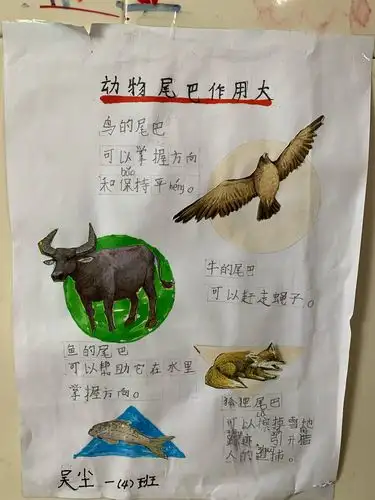 动物尾巴作用大
鸟的尾巴
可以掌握方向
bǎo
和保持平héng。
牛的尾巴
可以赶走蝇子。
鱼的尾巴
可以帮助它在水里
掌握方向。
狐狸尾巴
可以擦掉雪地
引开猎
人的追捕。
吴尘 一(4)班